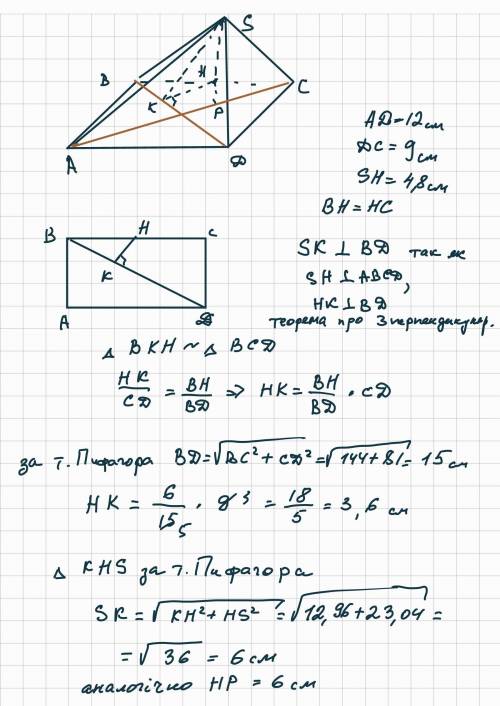 S
B H C
K P
A D
AD=12см
DC=9см
SH=4,8см
BH=HC
B H C
K
A D
SK ⊥ BD так як
SH ⊥ ABCD,
HK ⊥ BD
теорема про 3 перпендикуляр.
△ BKH ~ △ BCD
HK/CD = BH/BD ⇒ HK = BH/BD · CD
за т. Пифагора BD=√(BC²+CD²)=√(144+81)=15см
HK = 6/15 5 · 9 3 = 18/5 = 3,6 см
△ KHS за т. Пифагора
SK = √(KH²+HS²) = √(12,96+23,04) =
= √36 = 6 см
аналогічно HP = 6 см